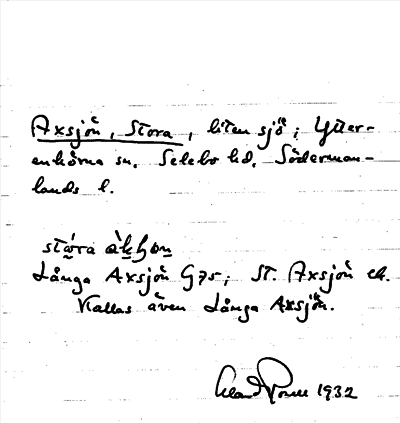 Axsjön, Stora, liten sjö; Ytter-
enhörna sn. Selebo hd. Söderman-
lands l.
stora
Långa Axsjön G75; St. Axsjön ek.
Kallas även Långa Axsjön.
1932